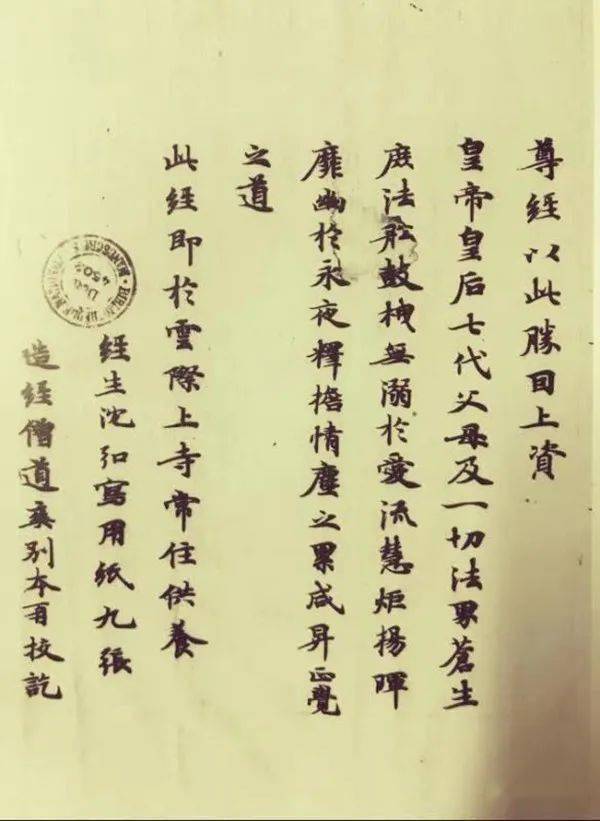 尊經以此勝囙上資
皇帝皇后七代父母及一切法界蒼生
庶法舩鼓栧無溺於愛流慧炬揚暉
靡幽於永夜釋擔情塵之累咸昇正覺
之道
此經即於雲際上寺常住供養
經生沈弘寫用紙九張
造經僧道爽別本再校訖
Don
4502